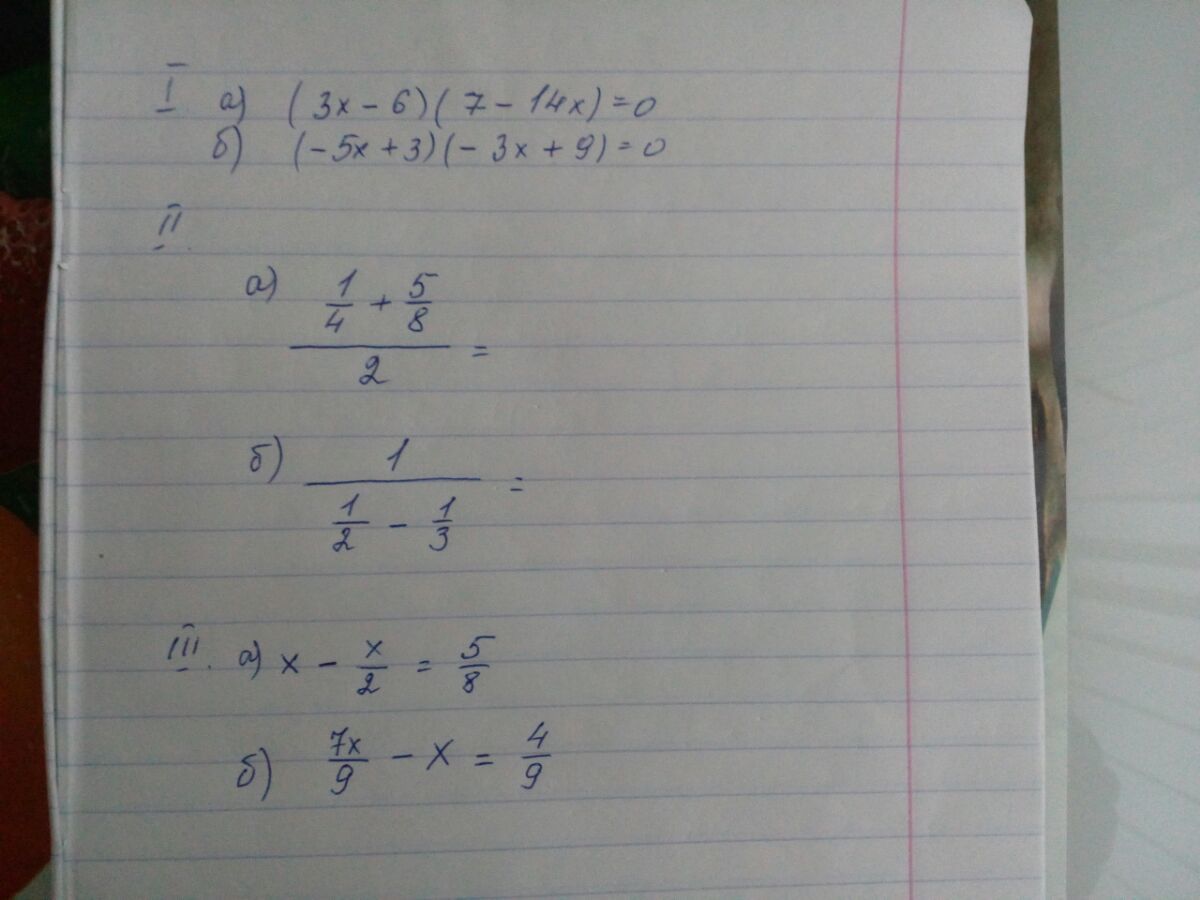 I а) (3x - 6)(7 - 14x) = 0
б) (-5x + 3)(-3x + 9) = 0
II.
а) (1/4 + 5/8)/2 =
б) 1/(1/2 - 1/3) =
III. а) x - x/2 = 5/8
б) 7x/9 - x = 4/9